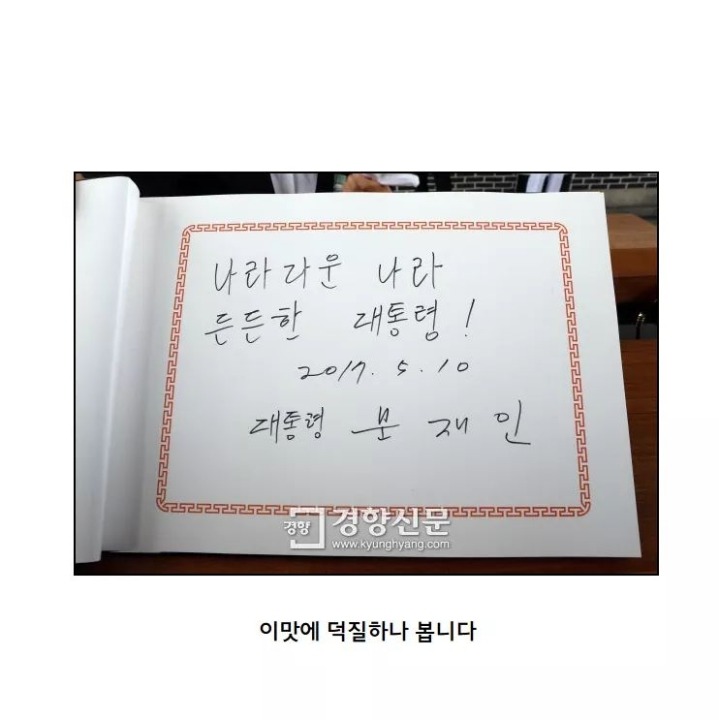 나라다운 나라
든든한 대통령!
2017. 5. 10
대통령 문재인
경향 경향신문
www.kyunghyang.com
이맛에 덕질하나 봅니다